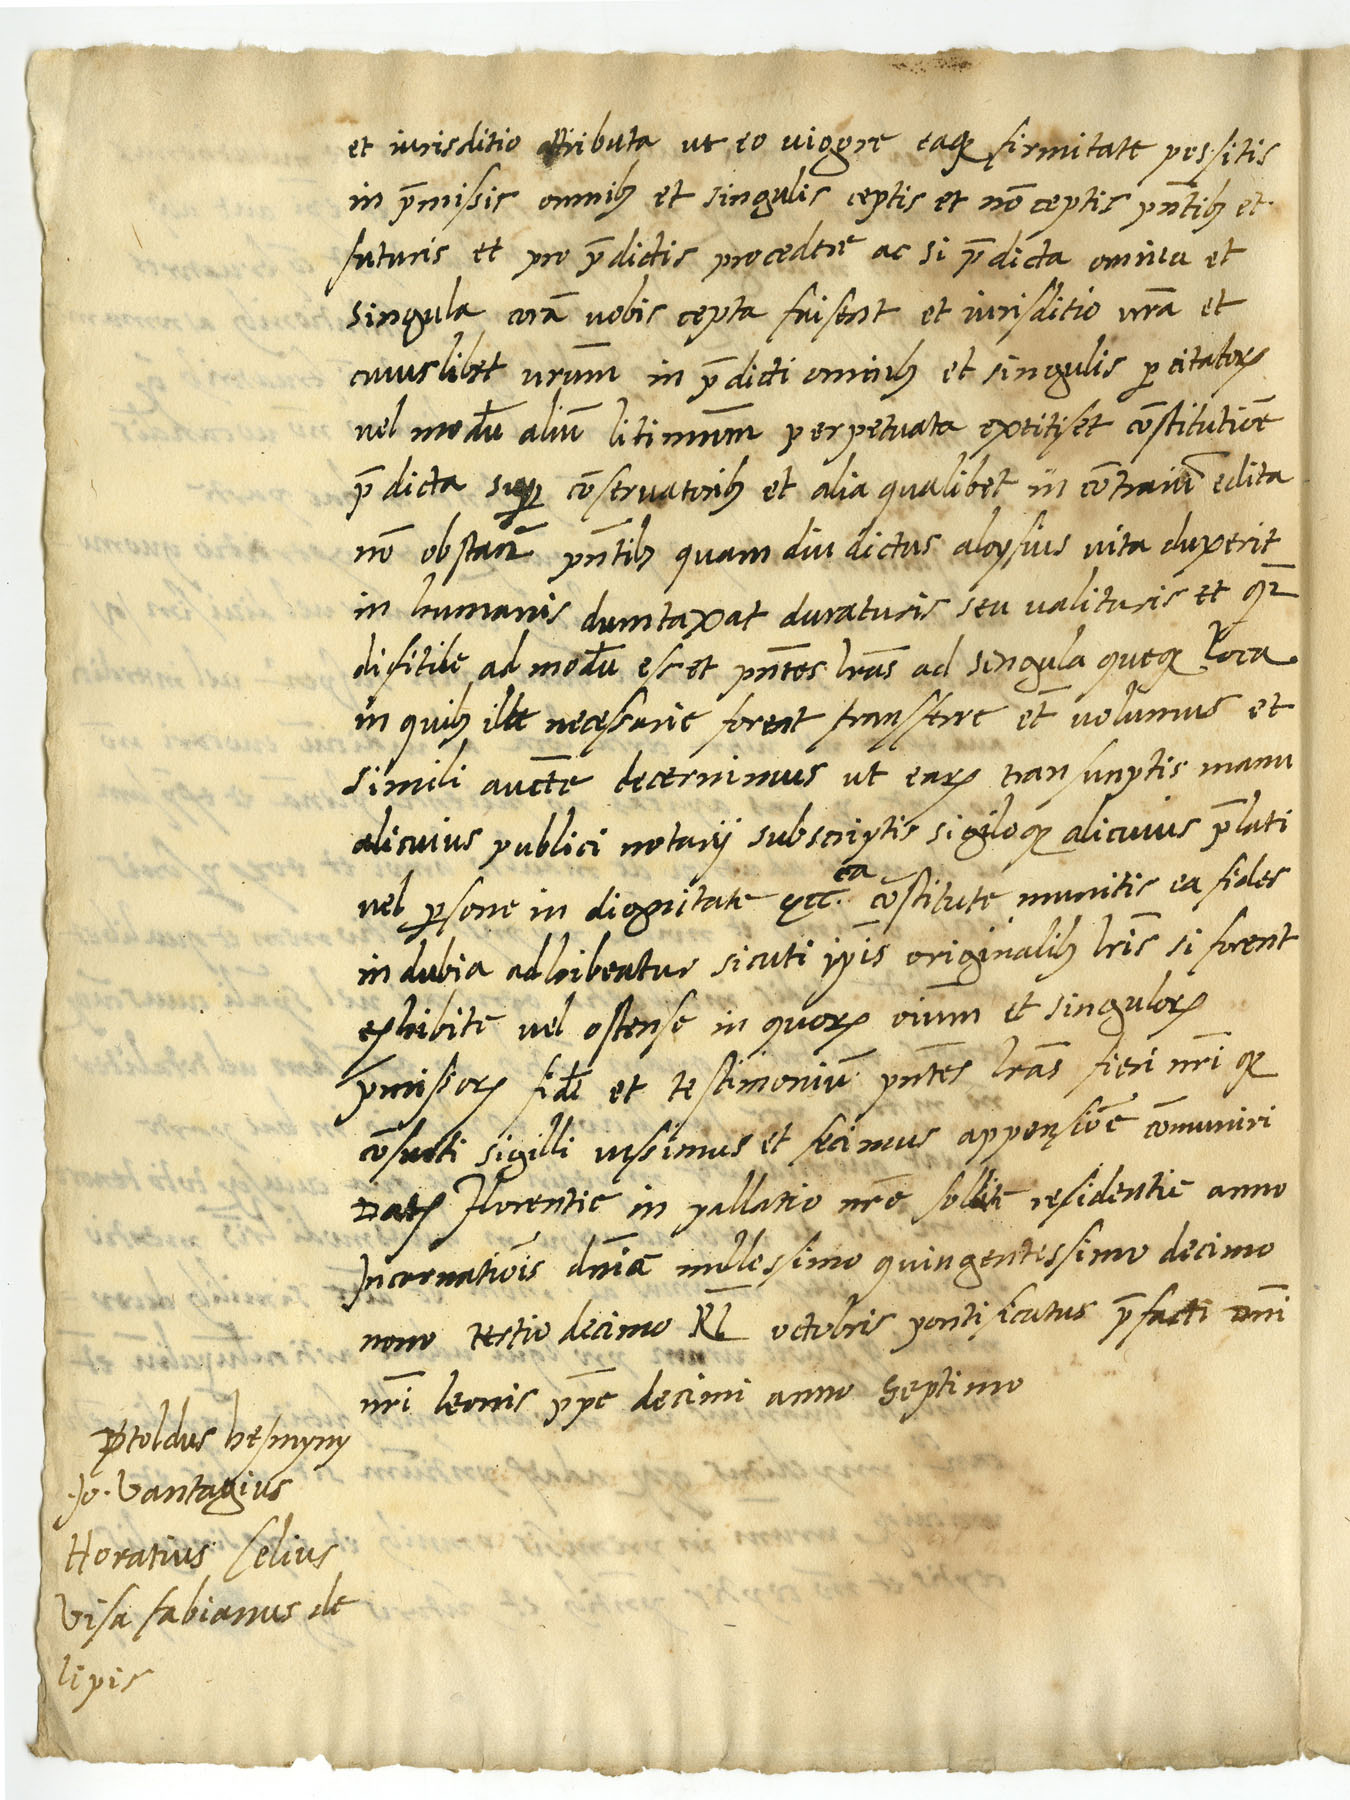 et iurisditio attributa ut eo uigore eaq firmitate possitis
in p̄missis omnib et singulis ceptis et nō ceptis pn̄tib et
futuris et pro p̄dictis procedere ac si p̄dicta omnia et
singula corā uobis cepta fuisent et iurisditio vrā et
cuiuslibet vrūm in p̄dicti omnib et singulis p citatorꝫ
vel modū aliū litimūm perpetuata extitiset cōstitutiōe
p̄dicta sup cōseruatorib et alia qualibet in cōtraiū edita
nō obstan̄ pn̄tib quam diu dictus aloysius vita duxerit
in humanis dumtaxat duraturis seu valituris et q̄
difitile ad modū eset pn̄tes lrās ad singula queq loca
in quib ille necessarie forent transferre et̄ uolumus et
simili auct̄e decernimus ut earꝫ transunptis manu
alicuius publici notarij subscriptis sigiloq alicuius p̄lati
vel psone in dignitate ecc.ca cōstitute munitis ea fides
indubia adhibeatur sicuti ipīs originalib lrīs si forent
exhibite vel ostense in quorꝫ oiūm et singulorꝫ
p̄missorꝫ fidē et testimoniū pn̄tes lrās fieri nrī q
cōsueti sigilli iussimus et fecimus appensiōe cōmuniri
Datꝫ Florentie in pallatio nrē solite residentie anno
Incarnatiōis dn̄ice millessimo quingentessimo decimo
nono tertio decimo K̄l octobris pontificatus p̄facti dn̄i
nrī leonis pp̄e decimi anno septimo
hesmyny
.Jo. Vantagius
Horatius Celius
Visa fabianus de
lipis